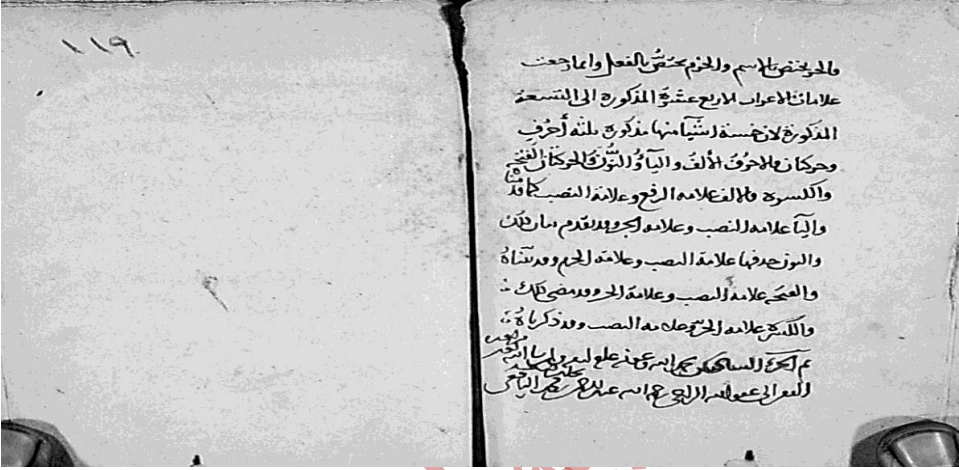 ١١٩
والجر يختص بالاسم والجزم يختص بالفعل وانما رجعت
علامات الاعراب الاربع عشرة المذكورة الى التسعة
المذكورة لان خمسة اشيآ منها مذكورة ثلثه أحرف
وحركتان فالاحرف الألف واليآ والنون والحركتان الفتحه
والكسرة فالالف علامه الرفع وعلامة النصب كما قدمنا
واليآ علامه النصب وعلامه الجر وقد تقدم بيان ذلك
والنون حذفها علامة النصب وعلامة الجزم وقد بيناه
والفتحه علامه النصب وعلامة الجر وقد مضى ذلك
والكسرة علامه الجر وعلامه النصب وقد ذكرناه
تم الجزء بحمد الله وعونه على يد
الفقير الى عفو الله الراجي رحمه الله عبد